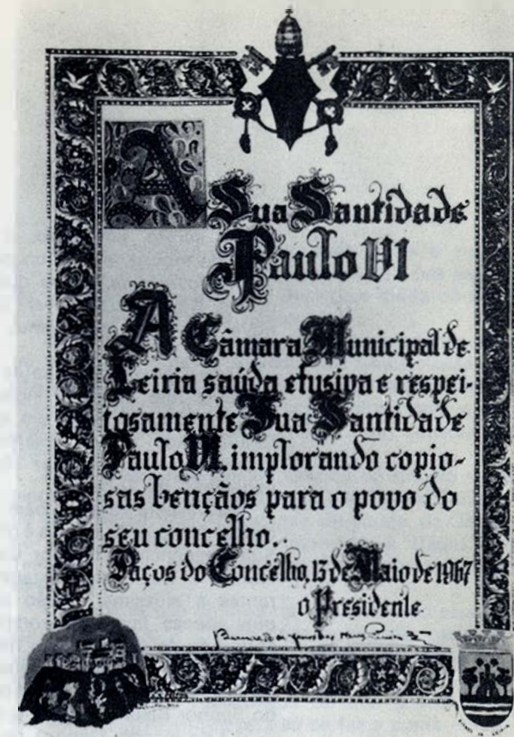 A Sua Santidade
Paulo VI
A Câmara Municipal de
Leiria saúda efusiva e respei-
tosamente Sua Santidade
Paulo VI, implorando copio-
sas benções para o povo do
seu concelho.
Paços do Concelho, 13 de Maio de 1967
o Presidente